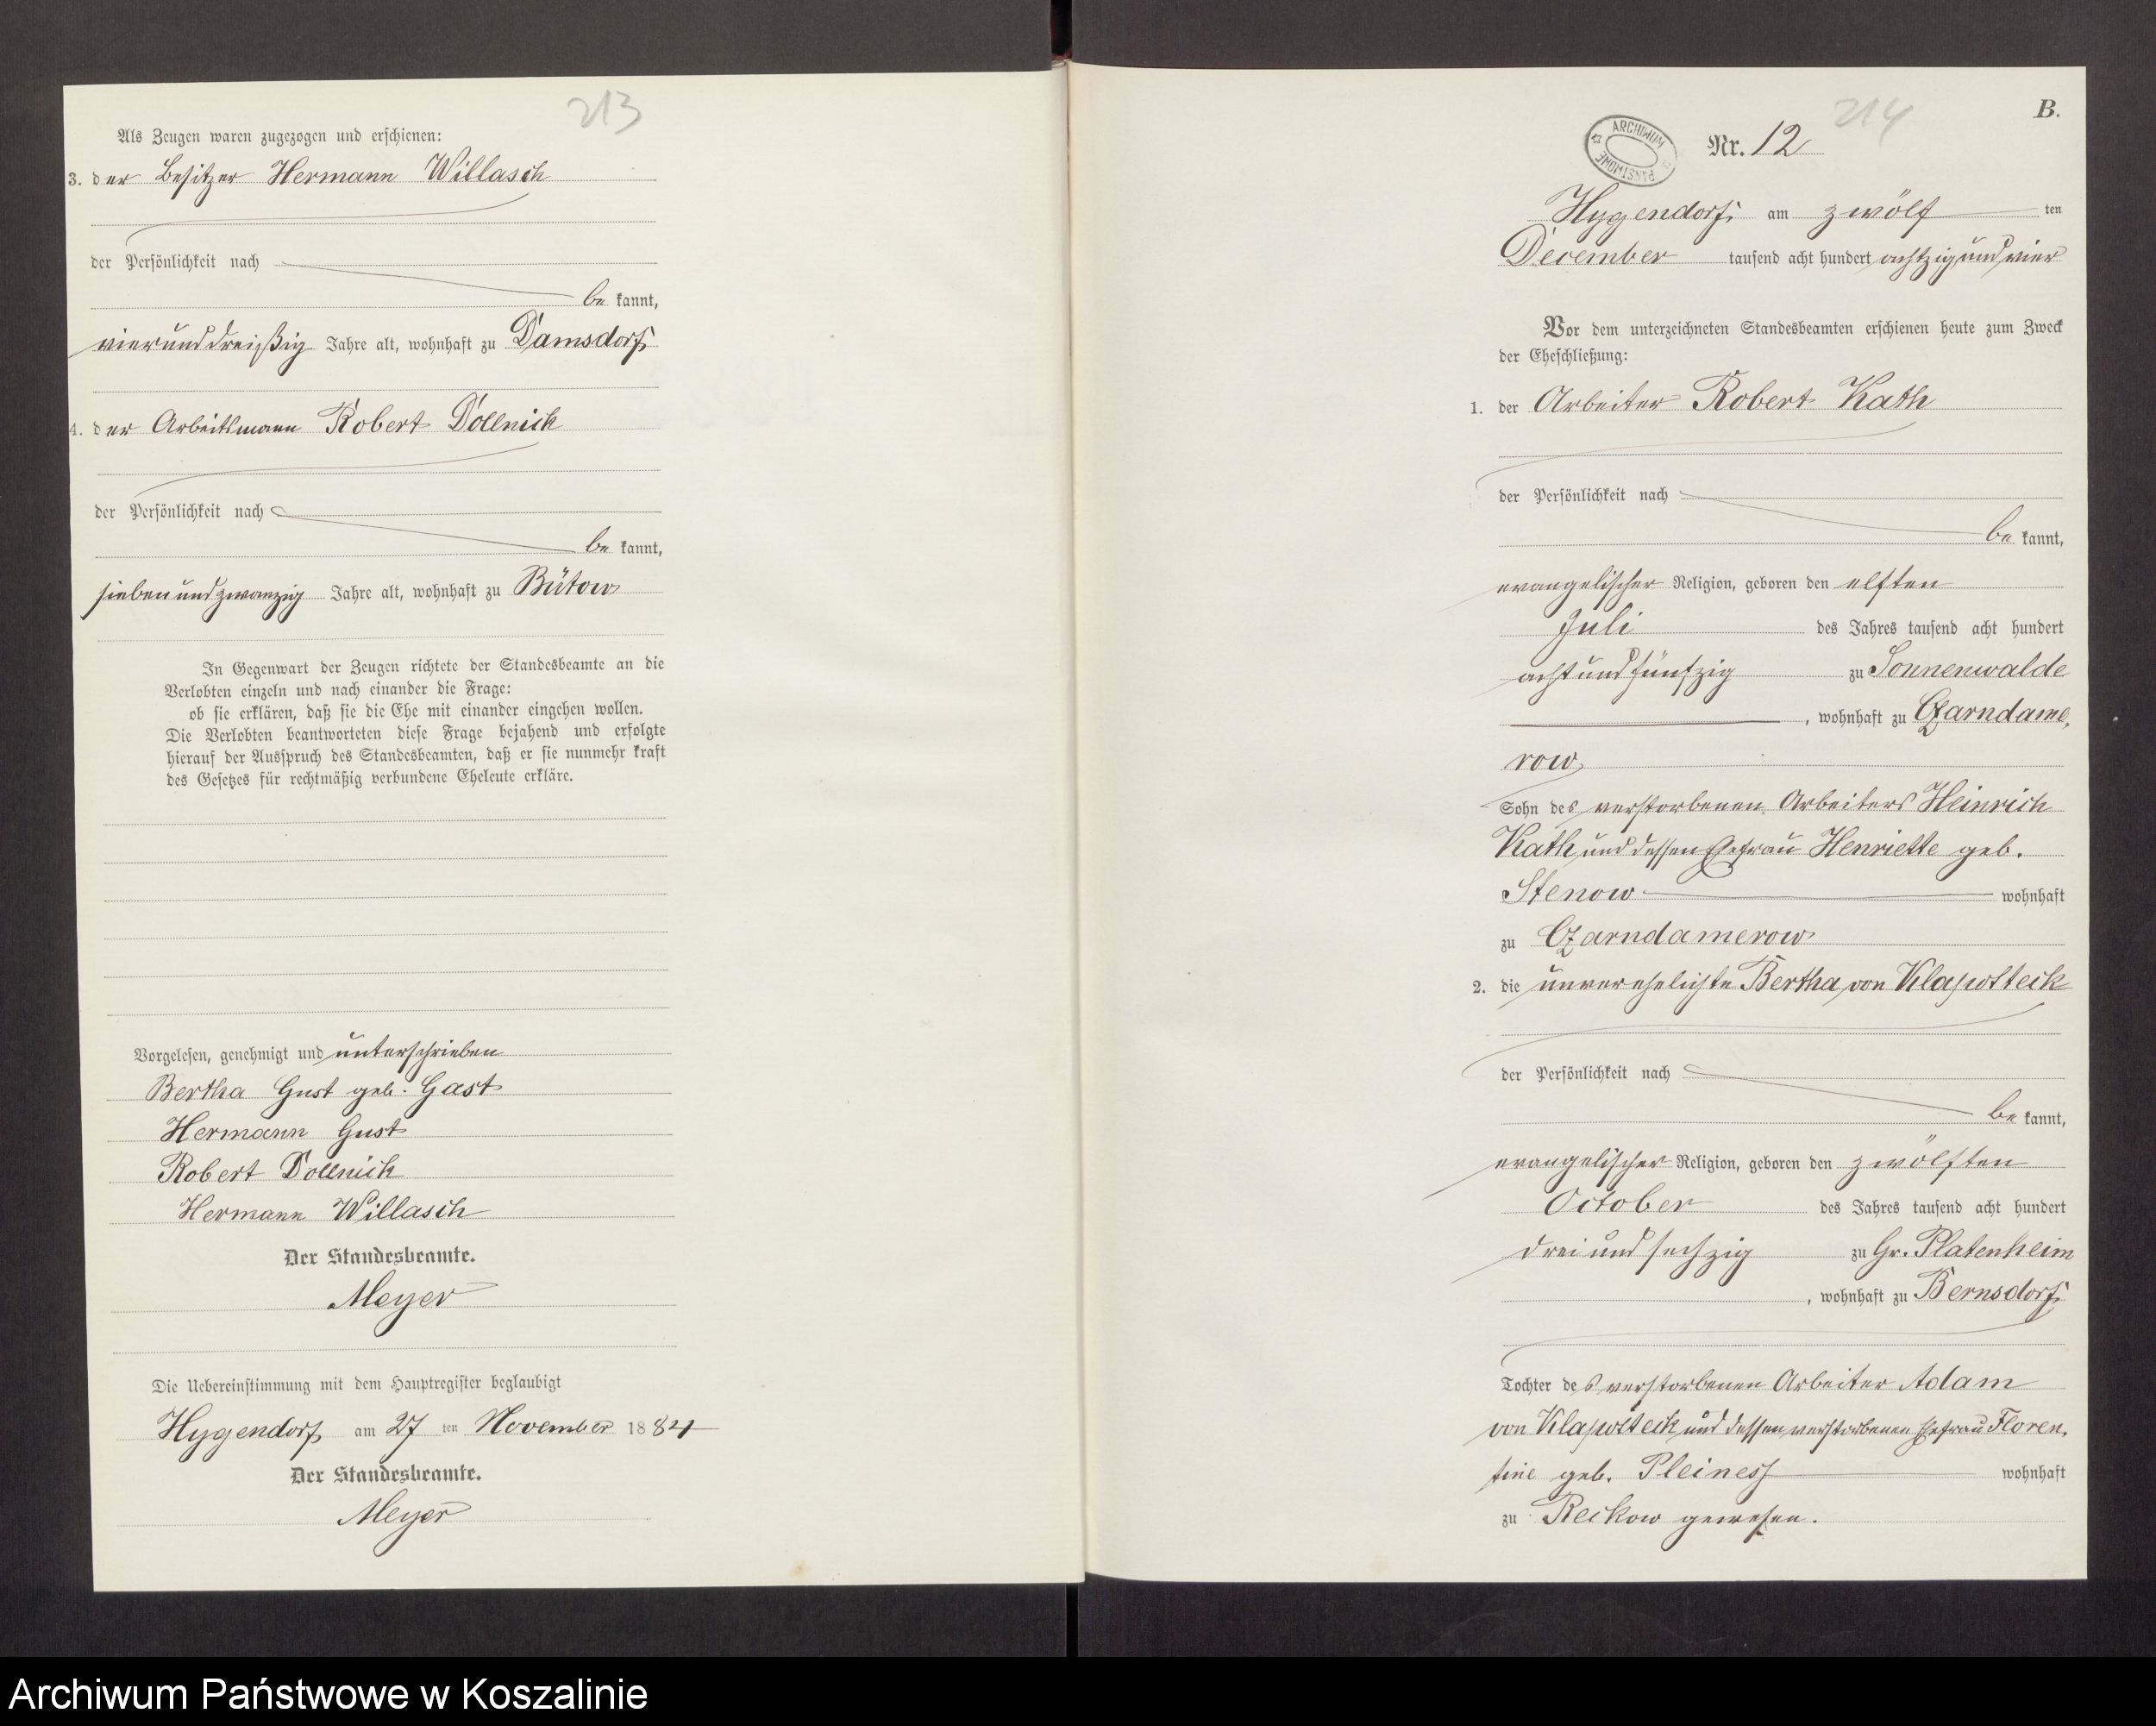 213
Als Zeugen waren zugezogen und erschienen:
3. der Besitzer Hermann Willasch
der Persönlichkeit nach
be kannt,
vierunddreißig Jahre alt, wohnhaft zu Damsdorf
4. der Arbeitsmann Robert Dollnick
der Persönlichkeit nach
be kannt,
siebenundzwanzig Jahre alt, wohnhaft zu Bütow
In Gegenwart der Zeugen richtete der Standesbeamte an die
Verlobten einzeln und nach einander die Frage:
ob sie erklären, daß sie die Ehe mit einander eingehen wollen.
Die Verlobten beantworteten diese Frage bejahend und erfolgte
hierauf der Ausspruch des Standesbeamten, daß er sie nunmehr kraft
des Gesetzes für rechtmäßig verbundene Eheleute erkläre.
Vorgelesen, genehmigt und unterschrieben
Bertha Gust geb. Gast
Hermann Gust
Robert Dollnick
Hermann Willasch
Der Standesbeamte.
Meyer
Die Uebereinstimmung mit dem Hauptregister beglaubigt
Hygendorf am 27 ten November 1884
Der Standesbeamte.
Meyer
214
B.
ARCHIWUM PAŃSTWOWE
Nr. 12
Hygendorf am zwölf ten
December tausend acht hundert achtzig und vier
Vor dem unterzeichneten Standesbeamten erschienen heute zum Zweck
der Eheschließung:
1. der Arbeiter Robert Kath
der Persönlichkeit nach
be kannt,
evangelischer Religion, geboren den elften
Juli des Jahres tausend acht hundert
acht und fünfzig zu Sonnenwalde
, wohnhaft zu Czarndame-
row
Sohn des verstorbenen Arbeiters Heinrich
Kath und dessen Ehefrau Henriette geb.
Stenow wohnhaft
zu Czarndamerow
2. die unverehelichte Bertha von Klapotteck
der Persönlichkeit nach
be kannt,
evangelischer Religion, geboren den zwölften
October des Jahres tausend acht hundert
drei und sechzig zu Gr. Platenheim
, wohnhaft zu Bernsdorf
Tochter des verstorbenen Arbeiter Adam
von Klapotteck und dessen verstorbenen Ehefrau Floren-
tine geb. Pleiness wohnhaft
zu Reckow gewesen.
Archiwum Państwowe w Koszalinie